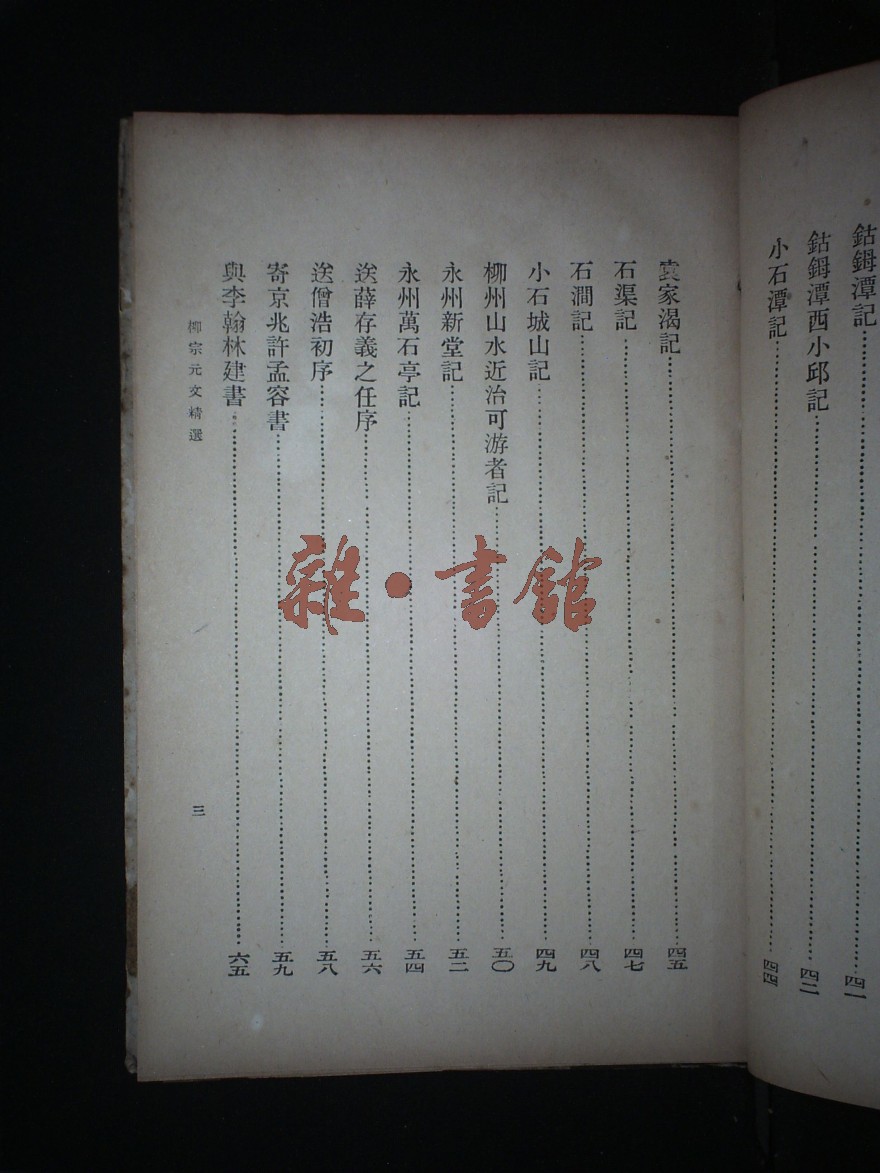 鈷鉧潭記……四一
鈷鉧潭西小邱記……四二
小石潭記……四四
袁家渴記……四五
石渠記……四七
石澗記……四八
小石城山記……四九
柳州山水近治可游者記……五〇
永州新堂記……五二
永州萬石亭記……五四
送薛存義之任序……五六
送僧浩初序……五八
寄京兆許孟容書……五九
與李翰林建書……六五
柳宗元文精選
三
雜·書館